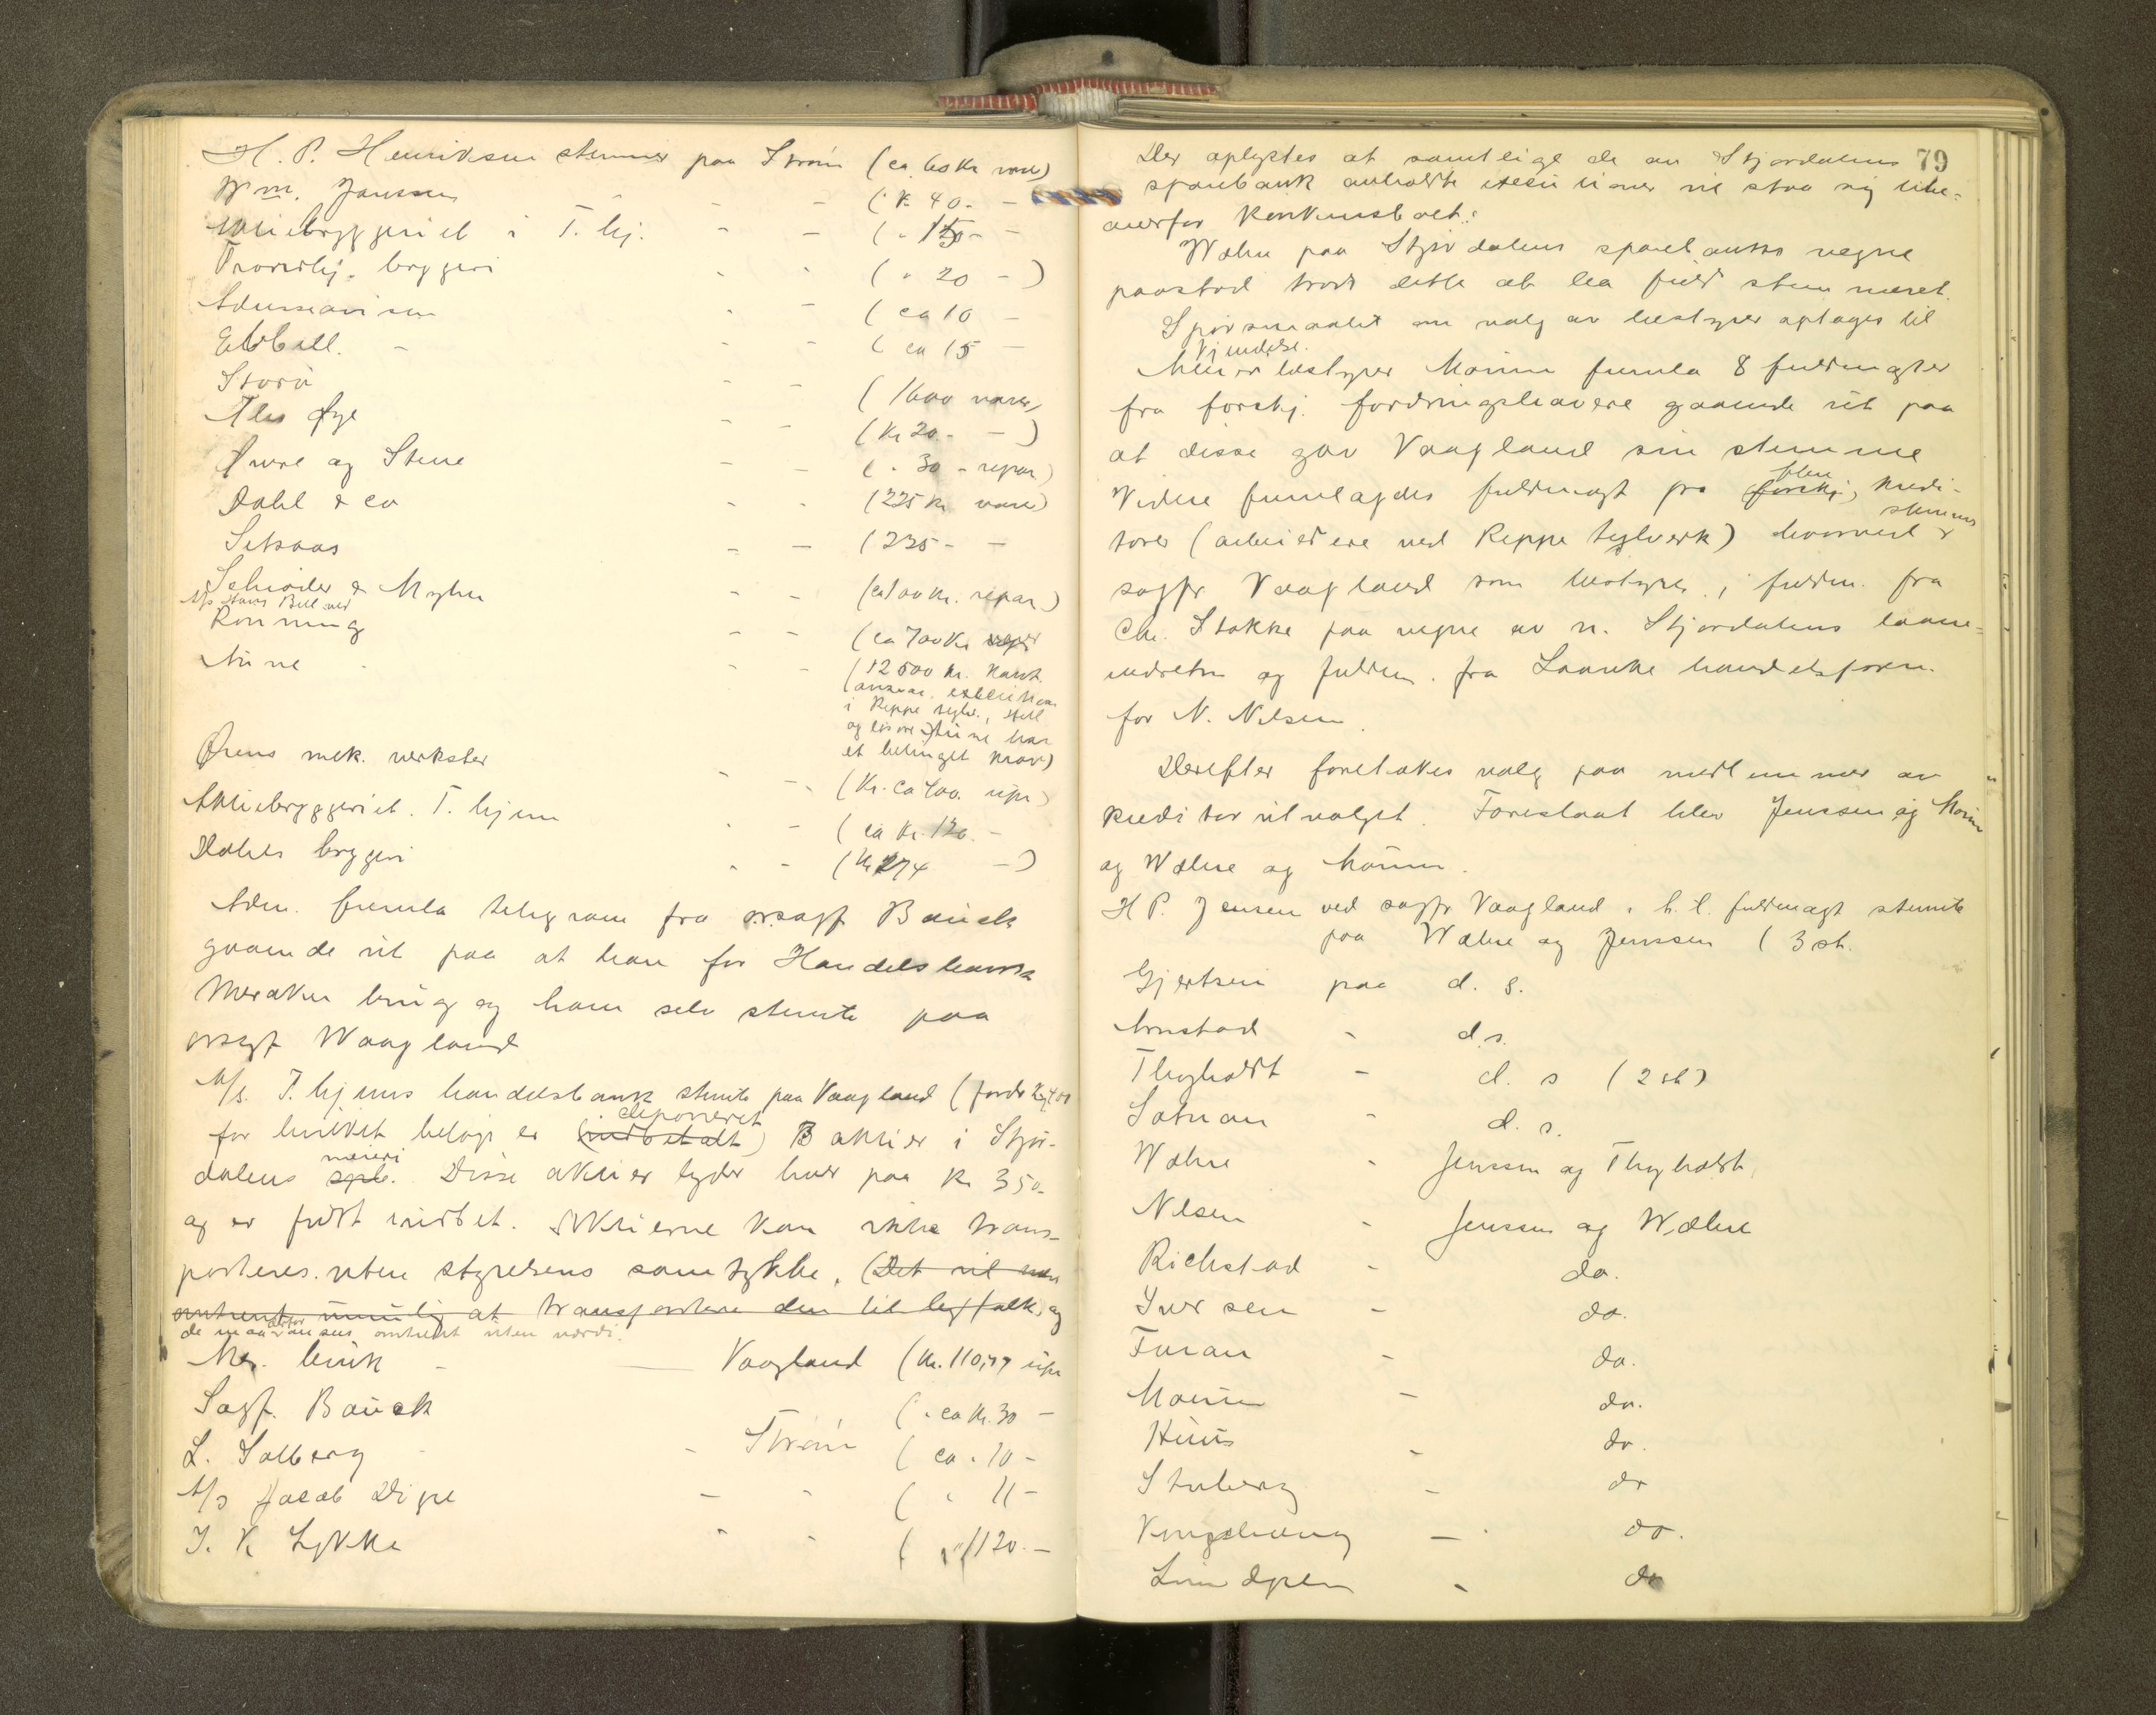 H. P. Henriksen stemmer paa Strøm (ca. 60 Kr vare)
Wm. Janssen - - - (K 40. -
Aktiebryggeriet i T. hj. - - ( " 150 - -
Trondhj. bryggeri - - ( " 20 - )
Adresseavisen - - ( ca 10 -
E. - - - ( ca 15 -
Storø - - ( 1600 varer)
Øye - - (Kr 20. - - )
Øwre og Stene - - ( " 30 - repar)
Dahl & co - - (225 Kr vare)
Setsaas - - (235 - -
Schrøder & Myhre - - (ca 100 Kr. repar.)
A/s
Rønning - - (ca 700 Kr
Aune - - - (12500 Kr. Kaut.
i Reppe teglv.,
og har
et betinget Krav)
Ørens mek. verksted - - (Kr. ca 400. upr)
Aktiebryggeriet. T. hjem - - ( ca Kr. 120. -
Dahls bryggeri - - (Kr 274 - )
Adm. fremla telegram fra orsagf Bauck
gaaende ut paa at han for Handelsbanken
Meraker brug og ham selv stemte paa
orsagf Waagland
A/s. T. hjems handelsbank stemte paa Vaagland (fordr
deponeret
for hvilket beløp er (indbetalt) 3 aktier i Stjør-
meieri
dalens spb. Disse aktier lyder hver paa Kr 350.
og er fuldt indbet. Aktierne kan ikke trans-
porteres uten styrelsens samtykke, (Det vil være
omtrent umulig at transportere dem til og
de maa derfor ansees omtrent uten værdi.
Mer. bruk - Vaagland (Kr. 110,77 upr
Sagf. Bauck ( " ca Kr. 30 -
L. Solberg - - Strøm ( ca " 10 -
A/s Jacob Digre - - ( " 11 -
I. K. Lykke - - ( 1120. -
79
Der oplystes at samtlige de av Stjørdalens
sparebank anholdte executioner vil staa sig like-
overfor Konkursboet.
Wæhre paa Stjørdalens sparebanks vegne
paastod trods dette at ha fuld stemmeret.
Spørsmaalet om valg av bestyrer optages til
Kjendelse.
bestyrer Moum fremla 8 fuldmagter
fra forskj. fordringshavere gaaende ut paa
at disse gav Vaagland sin stemme
flere
Videre fremlagdes fuldmagt fra forskj, kredi-
stemmes
torer (arbeidere ved Reppe teglverk) hvorved
sagfr Vaagland som bostyrer, fuldm. fra
Chr. Stokke paa vegne av n. Stjørdalens laane-
indretn og fuldm. fra Laanke handelsforen.
for N. Nilsen.
Derefter foretokes valg paa medlemmer av
kreditorutvalget. Foreslaat blev Jenssen og Moum
og Wæhre og Moum.
H P. Jensen ved sagfr Vaagland i h. t. fuldmagt stemte
paa Wæhre og Jenssen (3 st.
Gjertsen paa d. s.
Arnstad - d. s.
Thyholdt - d. s (2 st)
Sotnan - d. s.
Wæhre - Jenssen og Thyholdt,
Nilsen - Jenssen og Wæhre
Richstad - do.
Iversen - do.
Furan - do.
Moum - do.
Huus - do.
Stuberg - do
Kongshaug - do.
Lindgren - do